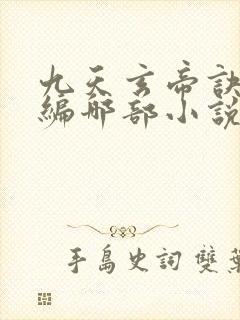 九天玄帝訣
編那部小說
手島史詞 雙葉